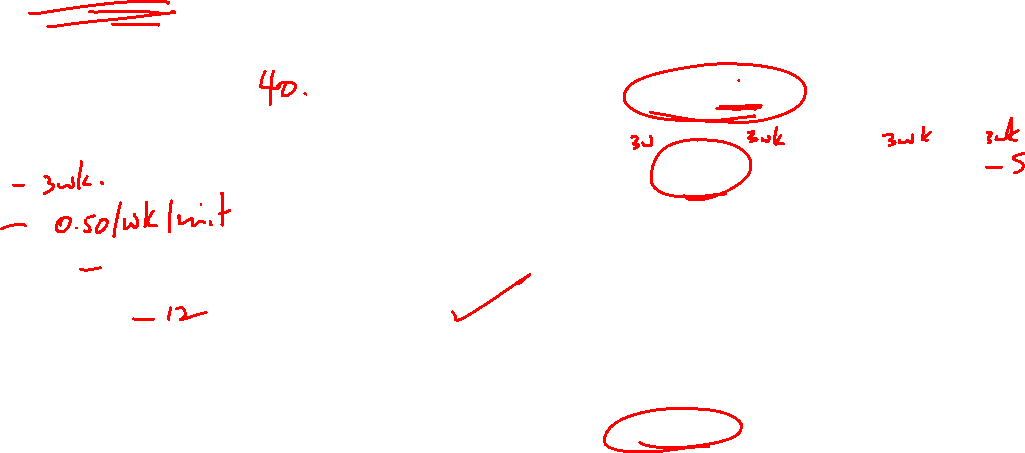 40.
3w 3wk 3wk 3wk
- 5
- 3wk.
- 0.50/wk/unit
-
- 12